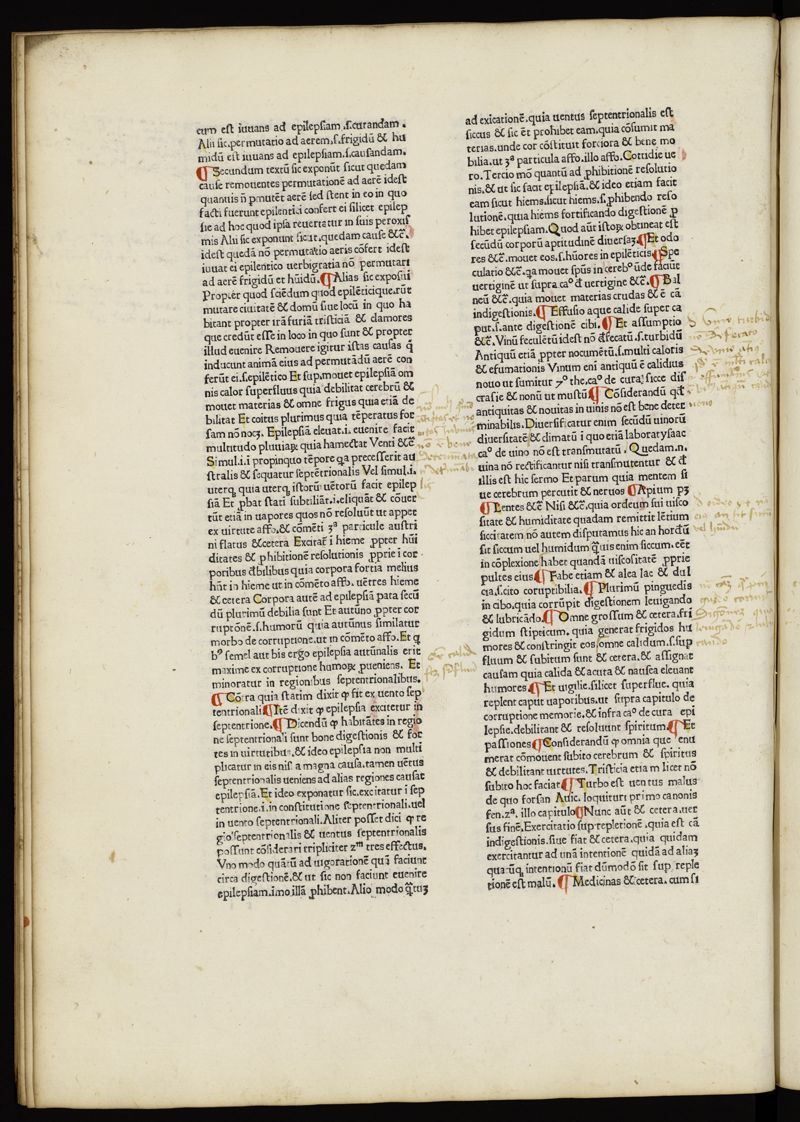 cum est iuuans ad epilepsiam .s.curandam .
Alii sic.permutatio ad aerem.s.frigidū & hu
midū est iuuans ad epilepsiam.s.causandam.
¶ Secundum textū sic exponūt sicut quedam
cause remouentes permutationē ad aerē idest
quamuis ñ pmutēt aerē sed stent in eo in quo
facti fuerunt epilentici confert ei silicet epilep
sie ad hoc quod ipsa reuertatur in suis peroxis
mis Alii sic exponunt sicut.quedam cause &c̄.
idest quedā nō permutatio aeris cōfert idest
iuuat ei epilentico uerbigratia nō permutari
ad aerē frigidū et hūidū.¶ Alias sic exposui
Propter quod sciēdum quod epilēticicique.rūt
mutare ciuitatē & domū siue locū in quo ha
bitant propter irā furiā tristiciā & clamores
que credūt esse in loco in quo sunt & propter
illud euenire Remouere igitur istas causas q̄
inducunt animā eius ad permutādū aerē con
ferūt ei.s.epilētico Et sup.mouet epilepsiā om
nis calor superfluus quia debilitat cerebrū &
mouet materias & omne frigus quia etiā de
bilitat Et coitus plurimus quia tēperatus for
sam nō nocꝫ. Epilepsiā eleuat.i. euenire facit
multitudo pluuiaꝝ quia hamectat Venti &c̄
Simul.i.i propinquo tēpore q̄a precesserit au
stralis & sequatur septētrionalis Vel simul.i.
uterqꝫ quia uterqꝫ istorū uētorū facit epilep
siā Et ꝓbat stati subtiliāt.i.eliquāt & cōuer
tūt etiā in uapores quos nō resoluūt ut appet
ex uirtute affo.& cōmēti 3ª particule austri
ni flatus &cetera Excitaꝛ̄ i hieme ꝓpter hūi
ditates & ꝓhibitionē resolutionis ꝓprie i cor
poribus dbilibus quia corpora fortia melius
hn̄t in hieme ut in cōmēto affo. uētres hieme
& cetera Corpora autē ad epilepsiā para secū
dū plurimū debilia sunt Et autūno ꝓpter cor
ruptōnē.s.humorū quia autūnus similatur
morbo de corruptione.ut in cōmēto affo. Et q̄
bº semel aut bis ergo epilepsia autūnalis erit
maxime ex corruptione humoꝝ ꝓueniens. Et
minoratur in regionibus septentrionalibus.
¶ Cōtra quia statim dixit ꝙ fit ex uento sep
tentrionali ¶ Itē dixit ꝙ epilepsia excitetur in
septentrione.¶ Dicendū ꝙ habitātes in regio
ne septentrionali sunt bone digestionis & for
tes in uirtutibus.& ideo epilepsia non multi
plicatur in eis nisi a magna causa.tamen uētus
septentrionalis ueniens ad alias regiones causat
epilepsiā. Et ideo exponatur sic.excitatur i sep
tentrione.i.in constitutione septentrionali.uel
in uento septentrionali. Aliter posset dici ꝙ re
gio septentrionalis & uentus septentrionalis
possunt cōsiderari tripliciter z^m tres effectus.
Vno modo quātū ad uigorationē quā faciunt
circa digestionē.& ut sic non faciunt euenire
epilepsiam.imo illā ꝓhibent. Alio modo q̄tūꝫ
ad exicationē.quia uentus septentrionalis est
siccus & sic ēt prohibet eam.quia cōsumit ma
terias.unde cor cōstituit forciora & bene mo
bilia.ut 3ª particula affo.illo affo. Cottidie ue
ro. Tercio mō quantū ad ꝓhibitionē resolutio
nis.& ut sic facit epilepsiā.& ideo etiam facit
eam sicut hiems.sicut hiems.s.ꝓhibendo reso
lutionē.quia hiems fortificando digestionē ꝓ
hibet epilepsiam. Quod aūt istoꝝ obtineat est
secūdū corporū aptitudinē diuersaꝫ.¶ Et odo
res &c̄.mouet eos.s.hūores in epilēticis ¶ Spe
culatio &c̄.q̄a mouet spūs in cerebº ūde faciūt
uertiginē ut supra caº d̄ uertigine &c̄.¶ Bal
neū &c̄.quia mouet materias crudas & ē cā
indigestionis.¶ Effusio aque calide super ca
put.s.ante digestionē cibi.¶ Et assumptio
&c̄. Vinū feculētū idest nō d̄fecatū.s.turbidū
Antiquū etiā ꝓpter nocumētū.s.multi caloris
& efumationis Vinum eni antiquū ē calidius
nouo ut sumitur 7º the.caº de cura. sicce dis
crasie & nonū ut mustū ¶ Cōsiderandū qđ
antiquitas & nouitas in uinis nō est bene deter
minabilis. Diuersificatur enim secūdū uinorū
diuersitatē & climatū i quo etiā laborat ysaac
caº de uino nō est transmutatū. Quedam.n.
uina nō rectificantur nisi transmutentur & d̄
illis est hic sermo Et parum quia mentem si
ue cerebrum percutit & neruos ¶ Apium pꝫ
¶ Lentes &c̄ Nisi &c̄.quia ordeum sui uisco
sitate & humiditate quadam remittit lētium
siccitatem nō autem disputamus hic an hordū
sit siccum uel humidum q̄uis enim siccum.eēt
in cōplexione habet quandā uiscositatē ꝓprie
pultes eius ¶ Fabe etiam & alea lac & dul
cia.s.cito corruptibilia.¶ Plurimū pinguedis
in cibo.quia corrupit digestionem leuigando
& lubricādo.¶ Omne grossum & cetera.fri
gidum stipticum. quia generat frigidos hu
mores & constringit eos omne calidum.s.sup
fluum & subitum sunt & cetera.& assignat
causam quia calida & acuta & nausea eleuant
humores ¶ Et uigilie.silicet superflue. quia
replent caput uaporibus.ut supra capitulo de
corruptione memorie.& infra caº de cura epi
lepsie.debilitant & resoluunt spiritum.¶ Et
passiones ¶ Considerandū ꝙ omnia que enu
merat cōmouent subito cerebrum & spiritus
& debilitant uirtutes. Tristicia etiam licet nō
subito hoc faciat ¶ Turbo est uentus malus
de quo forsan Auic. loquitur primo canonis
fen.zª. illo capitulo ¶ Nunc aūt & cetera.uer
sus finē. Exercitatio sup repletionē .quia est cā
indigestionis.siue fiat & cetera.quia quidam
exercitantur ad unā intentionē quidā ad aliaꝫ
quacūqꝫ intentionū fiat dūmodō sit sup reple
tionē est malū.¶ Medicinas & cetera. cum si